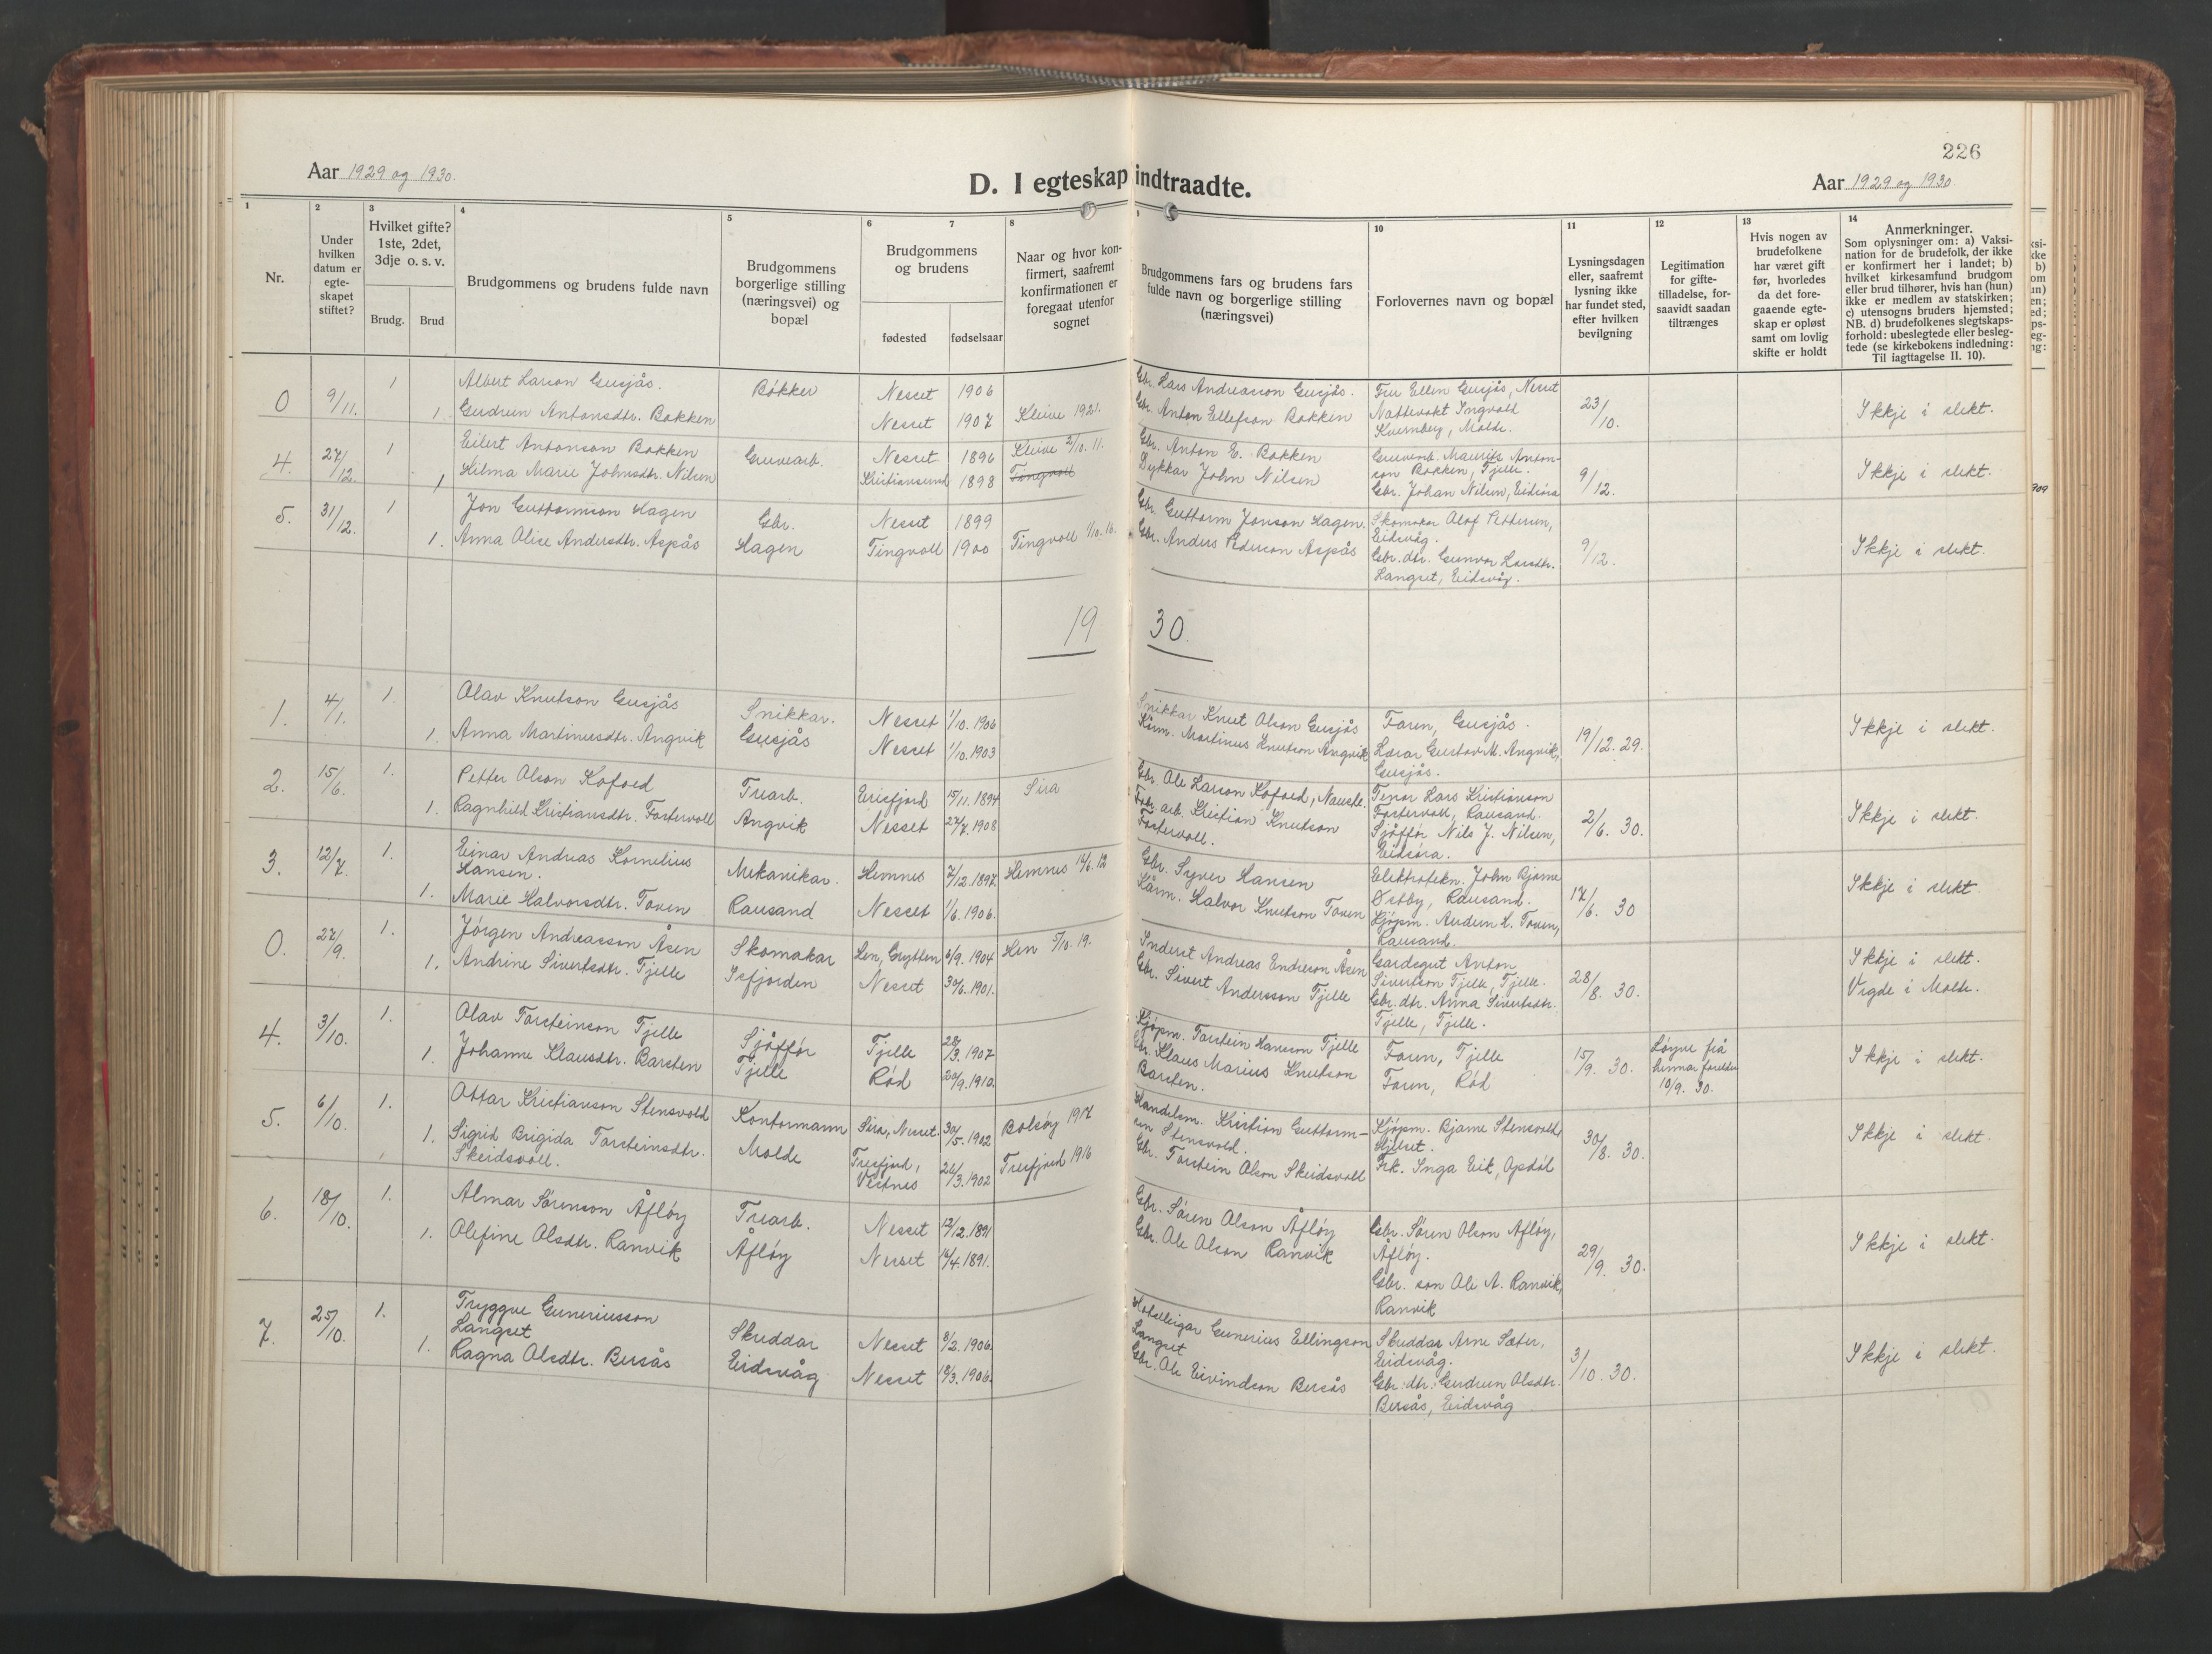 226
Aar 1929 og 1930.
D. I egteskap indtraadte.
Aar 1929 og 1930
1
Nr.
2
Under
hvilken
datum er
egte-
skapet
stiftet?
3
Hvilket gifte?
1ste, 2det,
3dje o. s. v.
Brudg.
Brud
4
Brudgommens og brudens fulde navn
5
Brudgommens
borgerlige stilling
(næringsvei) og
bopæl
6
7
Brudgommens
og brudens
fødested
fødselsaar
8
Naar og hvor kon-
firmert, saafremt
konfirmationen er
foregaat utenfor
sognet
9
Brudgommens fars og brudens fars
fulde navn og borgerlige stilling
(næringsvei)
10
Forlovernes navn og bopæl
11
Lysningsdagen
eller, saafremt
lysning ikke
har fundet sted,
efter hvilken
bevilgning
12
Legitimation
for gifte-
tilladelse, for-
saavidt saadan
tiltrænges
13
Hvis nogen av
brudefolkene
har været gift
før, hvorledes
da det fore-
gaaende egte-
skap er opløst
samt om lovlig
skifte er holdt
14
Anmerkninger.
Som oplysninger om: a) Vaksi-
nation for de brudefolk, der ikke
er konfirmert her i landet; b)
hvilket kirkesamfund brudgom
eller brud tilhører, hvis han (hun)
ikke er medlem av statskirken;
c) utensogns bruders hjemsted;
NB. d) brudefolkenes slegtskaps-
forhold: ubeslegtede eller besleg-
tede (se kirkebokens indledning:
Til iagttagelse II. 10).
0 9/11. 1 Albert Larson Gusjås. Bökker Nesset 1906 Gbr. Lars Andreasson Gusjås. Fru Ellen Gusjås, Nesset 23/10. Ikkje i slekt.
1. Gudrun Antonsdtr. Bakken Nesset 1907 Kleive 1921. Gbr. Anton Ellefson Bakken Nattevakt Ingvald
Kvernberg, Molde.
4. 27/12. 1 Eilert Antonson Bakken Gruvearb. Nesset 1896 Kleive 2/10. 11. Gbr. Anton E. Bakken Gruvearb. Maurits Anton- 9/12. Ikkje i slekt.
son Bakken, Tjelle.
1 Hilma Marie Johnsdtr. Nilsen Kristiansund 1898 Tingvoll Dykkar John Nilsen Gbr. Johan Nilsen, Eidsöra
5. 31/12. 1 Jon Guttormson Hagen Gbr. Nesset 1899 Gbr. Guttorm Jonson Hagen. Skomakar Olaf Pettersen, 9/12. Ikkje i slekt.
Eidsvåg.
1. Anna Olise Andersdtr. Aspås Hagen Tingvoll 1900 Tingvoll 1/10. 16. Gbr. Anders Pederson Aspås Gbr. dtr. Gunvor Larsdtr.
Langset, Eidsvåg.
19 30.
1. 4/1. 1. Olav Knutson Gusjås Snikkar. Nesset 1/10. 1906 Snikkar Knut Olson Gusjås Faren, Gusjås. 19/12. 29. Ikkje i slekt.
1. Anna Martinusdtr. Angvik Gusjås Nesset 1/10. 1903 Kårm. Martinus Knutson Angvik Lærar Gustav M. Angvik,
Gusjås.
2. 15/6. 1. Petter Olson Kofoed Trearb. Eresfjord 15/11. 1894 Sira Gbr. Ole Larson Kofoed, Nauste. Tenar Lars Kristianson 2/6. 30. Ikkje i slekt.
Fostervoll, Rausand.
1. Ragnhild Kristiansdtr. Fostervoll Angvik Nesset 27/7. 1908 Fabr. arb. Kristian Knutson Sjåffør Nils J. Nilsen,
Fostervoll. Eidsöra.
3. 12/7. 1. Einar Andreas Kornelius Mekanikar. Hemnes 7/12. 1897. Hemnes 16/6. 12 Gbr. Syver Hansen Elektrotekn. John Bjarne 17/6. 30 Ikkje i slekt.
Hansen. Østby, Rausand.
1. Marie Halvorsdtr. Toven Rausand Nesset 1/6. 1906. Kårm. Halvor Knutson Toven Kjöpm. Audun H. Toven,
Rausand.
0. 27/9. 1. Jörgen Andreasson Åsen Skomakar Hen, Grytten 6/9. 1904 Hen 5/10. 19. Inderst Andreas Endreson Åsen Gardsgut Anton 28/8. 30. Ikkje i slekt.
Sivertson Tjelle, Tjelle. Vigde i Molde.
1. Andrine Sivertsdtr. Tjelle Isfjorden Nesset 30/6. 1901. Gbr. Sivert Andersson Tjelle Gbr. dtr. Anna Sivertsdtr.
Tjelle, Tjelle.
4. 3/10. 1. Olav Torsteinson Tjelle Sjåffør Tjelle 28/3. 1907 Kjöpm. Torstein Hansson Tjelle Faren, Tjelle 15/9. 30. Löyve frå Ikkje i slekt.
hennar foreldre
1. Johanne Klausdtr. Barsten Tjelle Röd 20/9. 1910. Gbr. Klaus Marius Knutson Faren, Röd 10/9. 30.
Barsten.
5. 6/10. 1. Ottar Kristianson Stensvold Kontormann Sira, Nesset. 30/5. 1902 Bolsöy 1917 Handelsm. Kristian Guttorm- Kjöpm. Bjarne Stensvold, 30/8. 30. Ikkje i slekt.
son Stensvold. Hjelset.
1. Sigrid Brigida Torsteinsdtr. Molde Tresfjord, 24/3. 1902 Tresfjord 1916 Gbr. Torstein Olson Skeidsvoll Frk. Inga Eik, Opdöl
Skeidsvoll. Vestnes
6. 18/10. 1. Almar Sörenson Åflöy Trearb. Nesset 12/12. 1891 Gbr. Sören Olson Åflöy Gbr. Sören Olson Åflöy, 29/9. 30. Ikkje i slekt.
Åflöy.
1. Olefine Olsdtr. Ranvik Åflöy Nesset 16/4. 1891. Gbr. Ole Olson Ranvik Gbr. son Ole A. Ranvik,
Ranvik
7. 25/10. 1. Tryggve Guneriusson Skuddar Nesset 8/2. 1906. Hotelleigar Gunerius Ellingson Skuddar Arne Sæter, 3/10. 30. Ikkje i slekt.
Langset Langset Eidsvåg.
1. Ragna Olsdtr. Bersås Eidsvåg Nesset 18/3. 1906. Gbr. Ole Eivindson Bersås Gbr. dtr. Gudrun Olsdtr.
Bersås, Eidsvåg